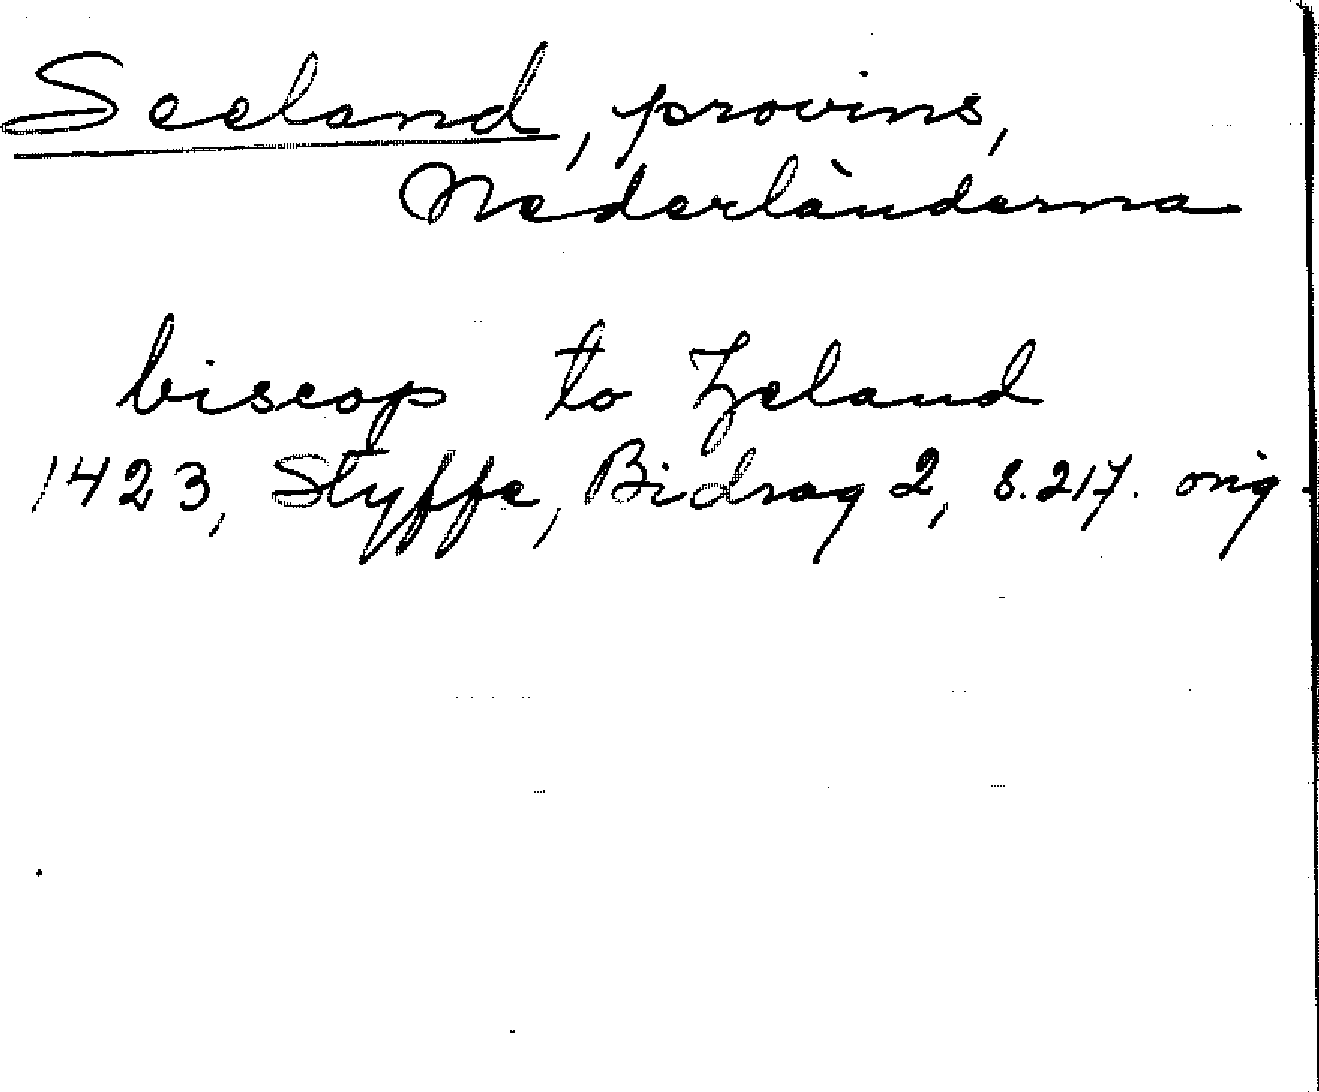 Seeland, provins,
Nederländerna
biscop to Zeland
1423, Styffe, Bidrag 2, s. 217. orig.